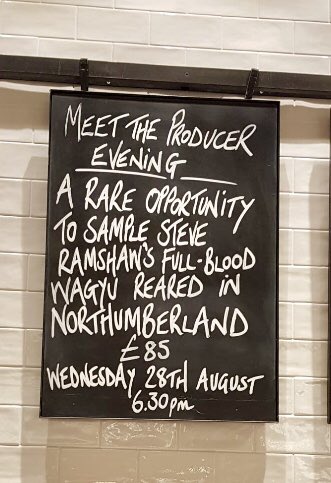 MEET THE PRODUCER
EVENING
A RARE OPPORTUNITY
TO SAMPLE STEVE
RAMSHAW'S FULL-BLOOD
WAGYU REARED IN
NORTHUMBERLAND
£85
WEDNESDAY 28TH AUGUST
6.30pm